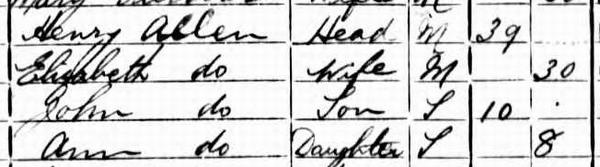 Henry Allen Head M 39
Elizabeth do Wife M 30
John do Son S 10
Ann do Daughter S 8